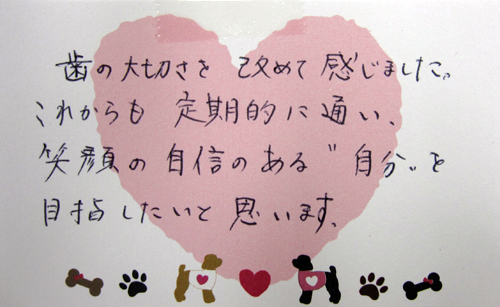 歯の大切さを 改めて 感じました。
これからも 定期的に 通い、
笑顔の 自信の ある〝自分〟を
目指したいと 思います。